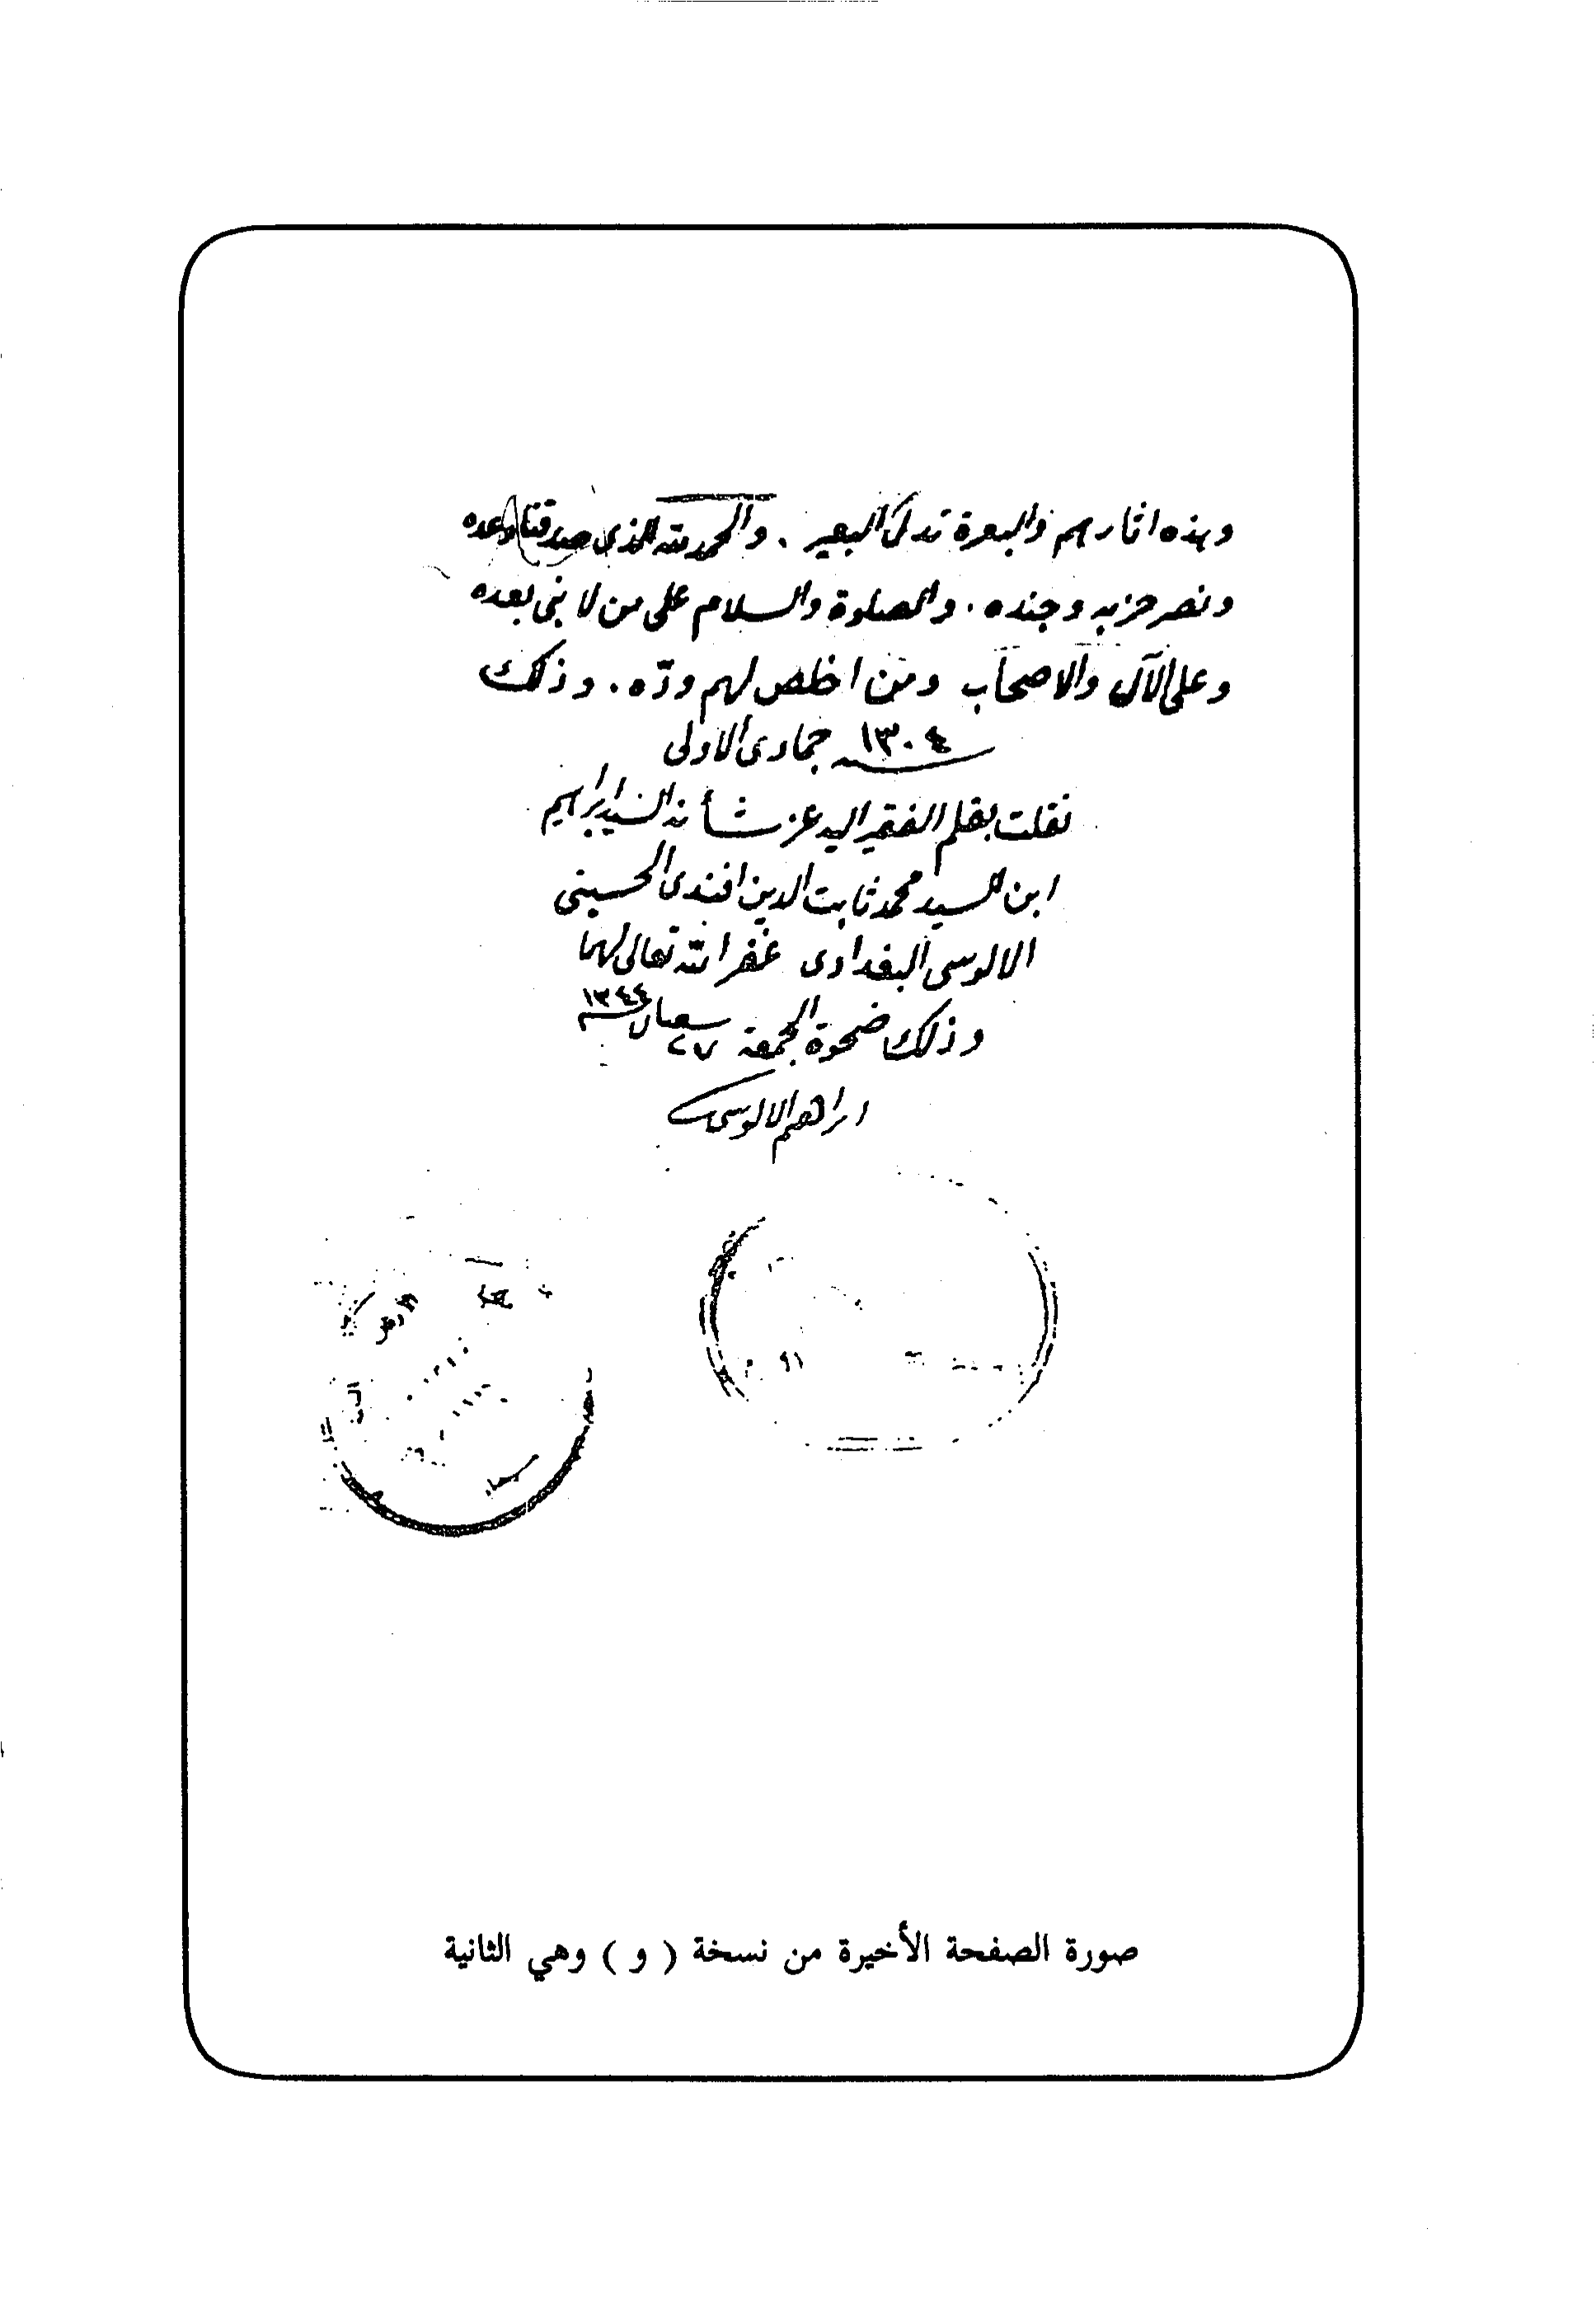 وهذه اثارهم والبعرة تدل البعير . والحمد لله الذي صدقنا وعده
ونصر حزبه وجنده . والصلوة والسلام على من لا نبي بعده
وعلى الآل والاصحاب ومن اخلص لهم ودّه . وذلك
١٣٠٤ جمادى الاولى
نقلت بقلم الفقير اليه عز شأنه السيد ابراهيم
ابن السيد محمد ثابت الدين افندى الحسيني
الالوسي البغدادى غفر الله تعالى لهما
وذلك ضحوة الجمعة ٢٧ شعبان ١٣٤٤
ابراهيم الالوسي
صورة الصفحة الأخيرة من نسخة ( و ) وهي الثانية